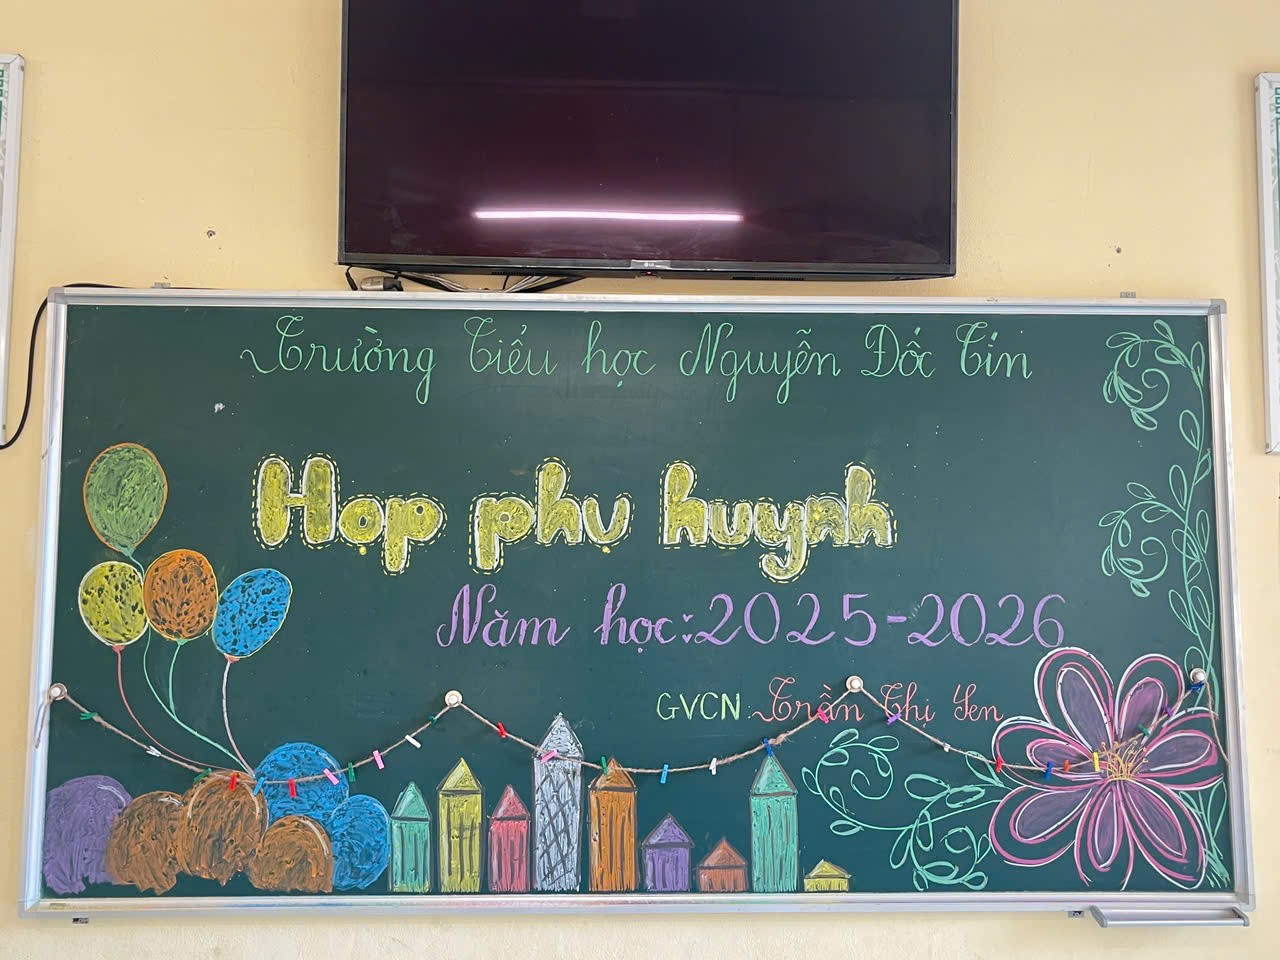 Trường Tiểu học Nguyễn Đốc Tín
Họp phụ huynh
Năm học: 2025-2026
GVCN: Trần Thị Yen